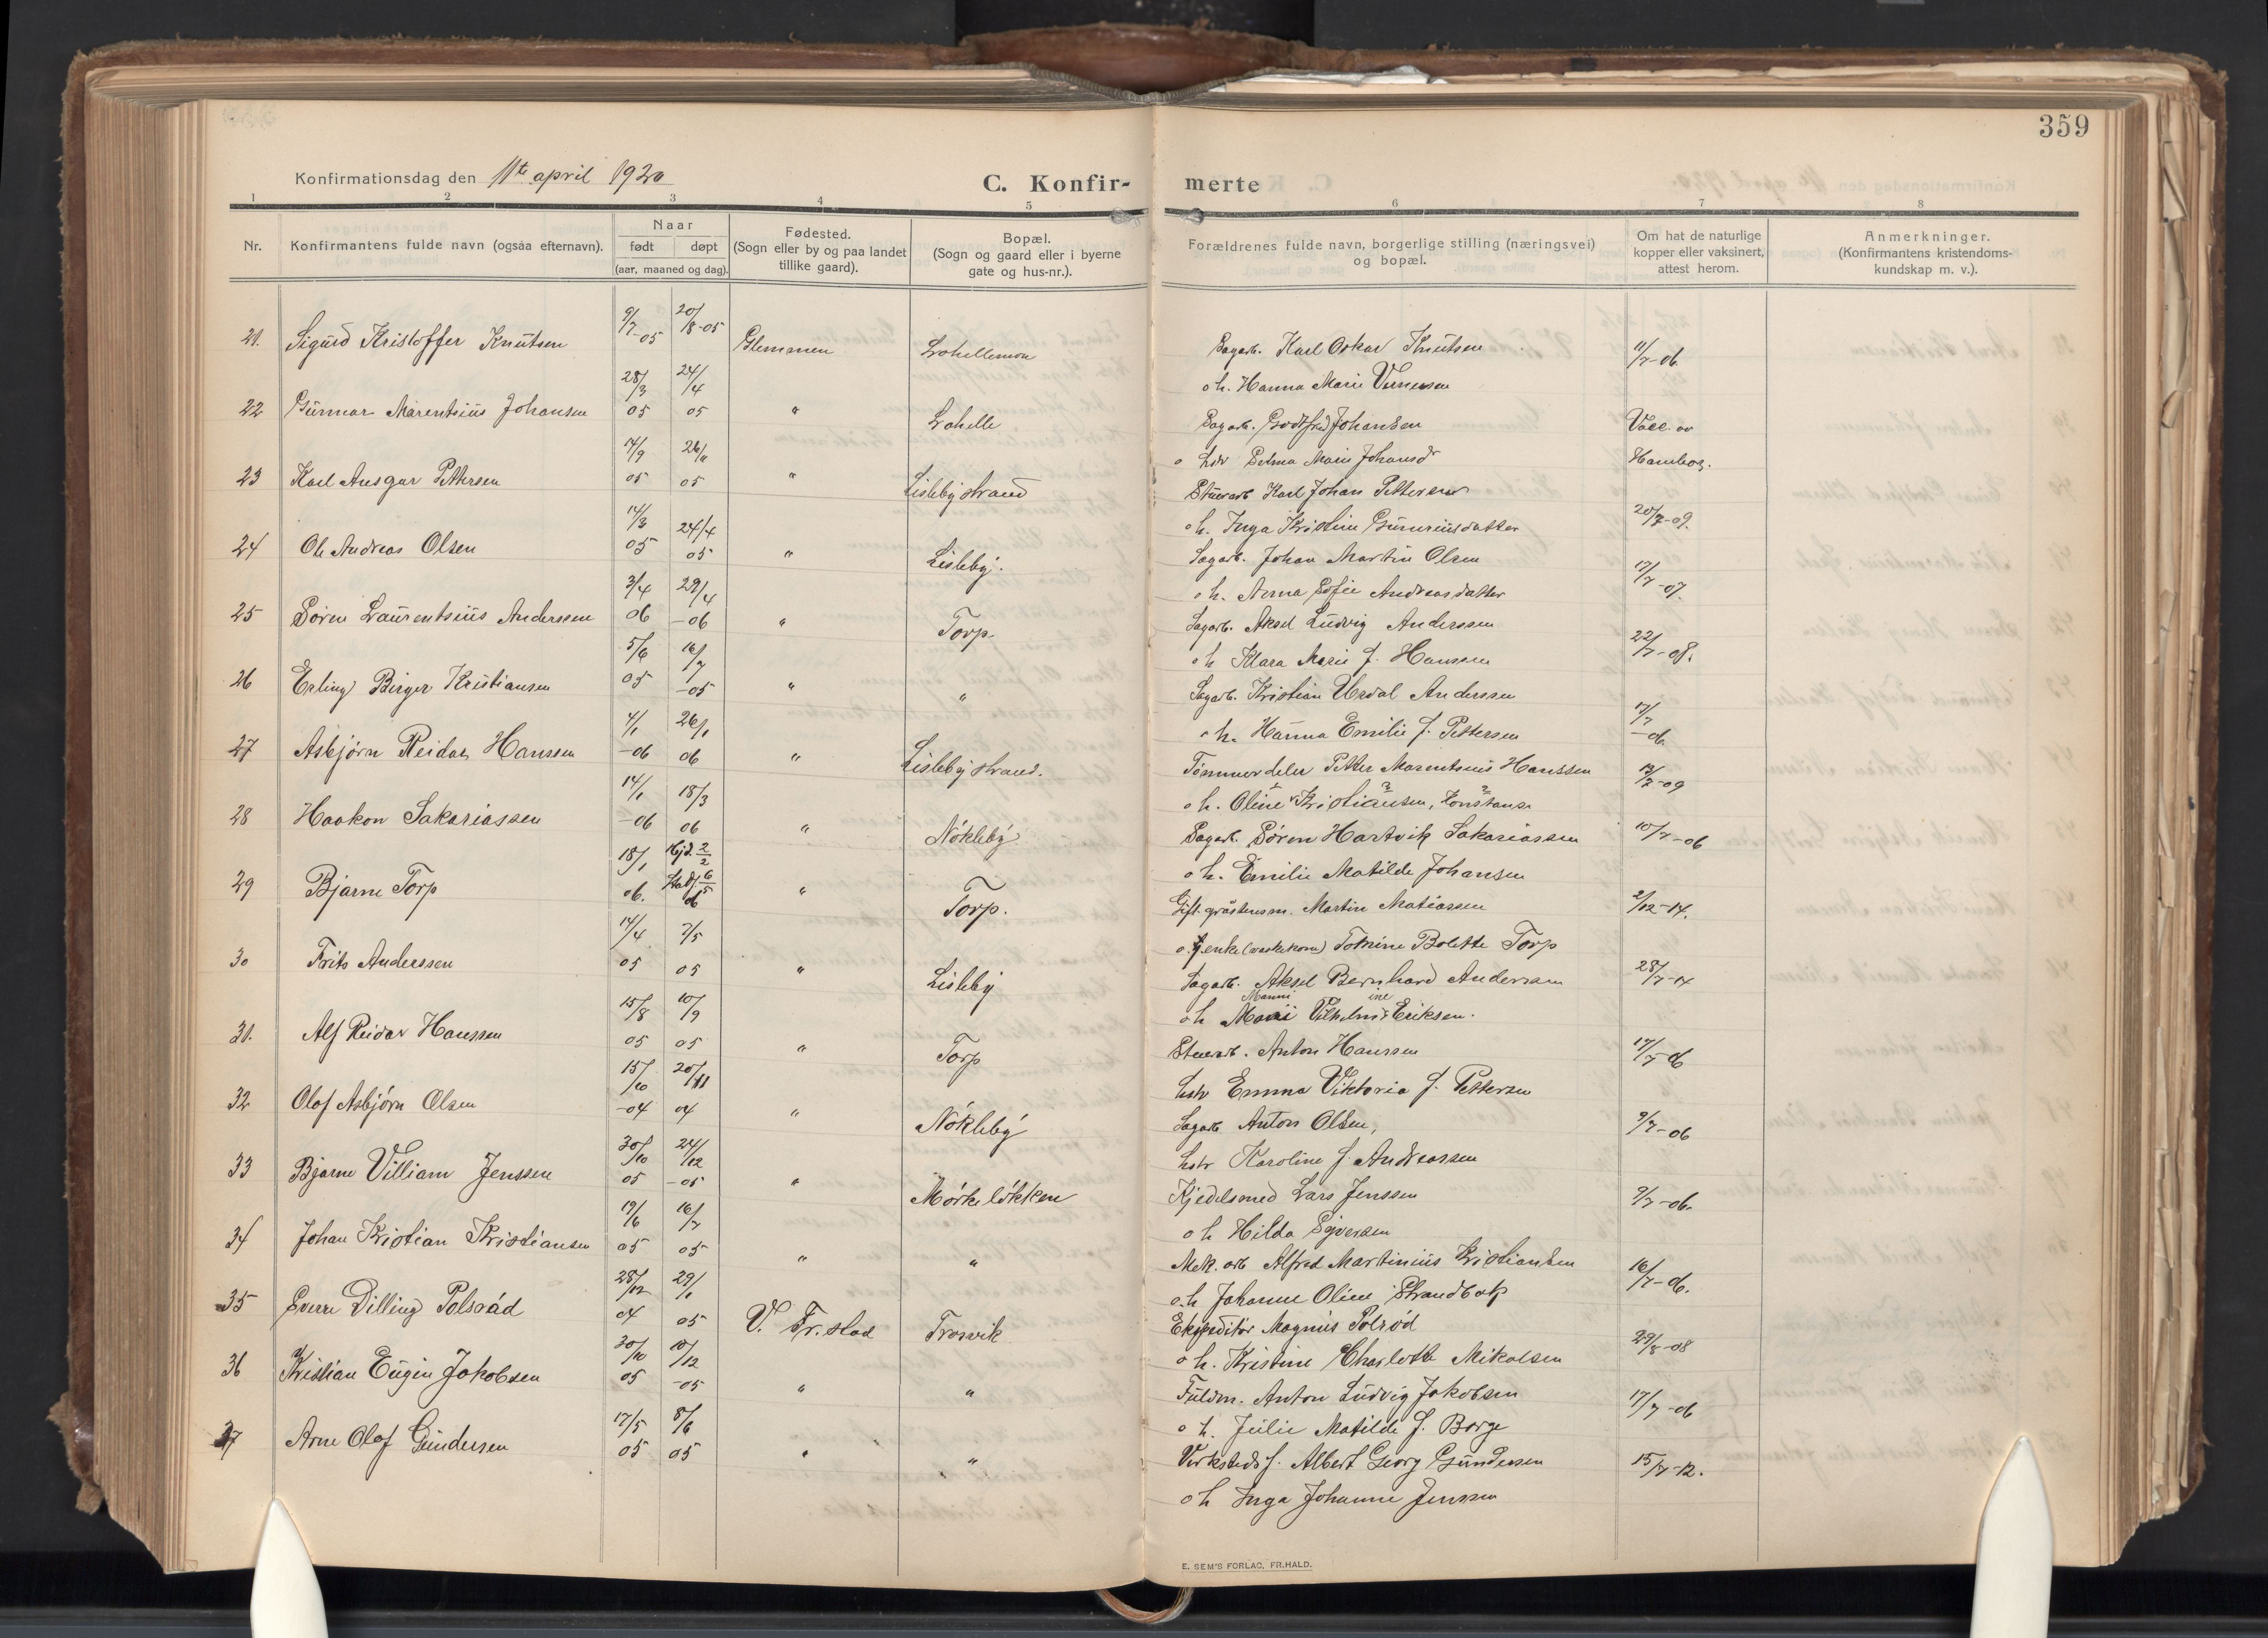 359
Konfirmationsdag den 11te april 1920
C. Konfir- merte
1 2 3 4 5 6 7 8
Nr.
Konfirmantens fulde navn (ogsaa efternavn).
Naar
født døpt
(aar, maaned og dag).
Fødested.
(Sogn eller by og paa landet
tillike gaard).
Bopæl.
(Sogn og gaard eller i byerne
gate og hus-nr.).
Forældrenes fulde navn, borgerlige stilling (næringsvei)
og bopæl.
Om hat de naturlige
kopper eller vaksinert,
attest herom.
Anmerkninger.
(Konfirmantens kristendoms-
kundskap m. v.).
21. Sigurd Kristoffer Knutsen 9/7-05 20/8-05 Glemmen Sagarb. Karl Oskar Knutsen 11/7-06
o h. Hanna Marie
22 Gunnar Marentsius Johansen 28/3 05 24/4 05 " Lahelle Sagarb. Godtfred Johansen Vacc. av
Selma Marie Johansd Hamborg.
23 Karl Ansgar Pettersen 14/9 05 26/11 05 " Lislebystrand Stuerarb Karl Johan Pettersen
o h. Inga Kristine Guneriusdatter 20/7-09.
24 Ole Andreas Olsen 14/3 05 24/4 05 " Lisleby. Sagarb. Johan Martin Olsen
o h. Anna Sofie Andreasdatter 17/7-07.
25 Søren Laurentsius Anderssen 3/4 06 29/4 -06 " Torp. Sagarb. Aksel Ludvig Anderssen
o h Klara Marie f. Hanssen 22/7-08.
26 Erling Birger Kristiansen 5/6 05 16/7 -05 " " Sagarb. Kristian Uredal Anderssen
o h. Hanna Emilie f. Pettersen 17/7-06
27 Asbjørn Reidar Hanssen 4/1 -06 26/1 06 " Lislebystrand. Tømmerdeler Petter Marentsius Hanssen
o h. Oline Kristiansen, Konstanse
28 Haakon Sakariassen 14/1 -06 18/3 06 " Nökleby Sagarb. Søren Hartvik Sakariassen 10/7-06
o h. Emilie Matilde Johansen
29 Bjarne Torp 18/1 06. Hjd. 2/2 Stadf. 6/5 06 " Torp. Gift gråstensm. Martin Matiassen 2/12-14.
o. enke (vaskekone) Tomine Bolette Torp
30 Frits Anderssen 14/4 05 7/5 05 " Lisleby Sagarb. Aksel Bernhard Anderssen 28/7-14
o h Marie Vilhelmine Eriksen.
31. Alf Reidar Hanssen 15/8 05 10/9 05 " Torp Stuerarb. Anton Hanssen 17/7-06
hstr Emma Viktoria f. Pettersen
32 Olof Asbjörn Olsen 15/10 -04 20/11 04 " Nökleby Sagarb Anton Olsen, 9/7-06
hstr Karoline f. Andreassen
33 Bjarne Villiam Jenssen 30/10 05 24/12 -05 " Mörkelökken Kjedelsmed Lars Jenssen 9/7-06.
o h Hilda Syversen
34 Johan Kristian Kristiansen 19/6 05 16/7 05 " " Mek. arb Alfred Martinius Kristiansen 16/7-06.
o. h Johanne Oline Strandbak
35 Sverre Dilling Polsrød 28/12 04 29/1 05 V. Fr.stad Trosvik Ekspeditør Magnus Polsrød
o h. Kristine Charlotte Mikalsen 29/8-08
36 Kristian Eugin Jakobsen 30/10 05 10/12 -05 " " Fuldm. Anton Ludvig Jakobsen 17/7-06
o h. Julie Matilde f. Borge
37 Arne Olof Gundersen 17/5 05 8/6 05 " " Verkstedsf. Albert Georg Gundersen 15/7-12.
o h Inga Johanne Jenssen
E. SEM'S FORLAG, FR.HALD.